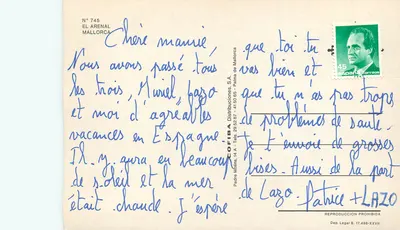 N° 745
EL ARENAL
MALLORCA
Chère mamie
Nous avons passé tous
les trois, Muriel, Lazo
et moi d'agréables
vacances en Espagne.
Il y aura eu beaucoup
de soleil et la mer
était chaude. J'espère
COFIBA Distribuciones, S.A.
que toi tu
vas bien et
que tu n'as pas trops
de problèmes de santé.
Je t'envoie de grosses
bises. Aussi de la part
de Lazo. Patrice + LAZO
REPRODUCCION PROHIBIDA
45